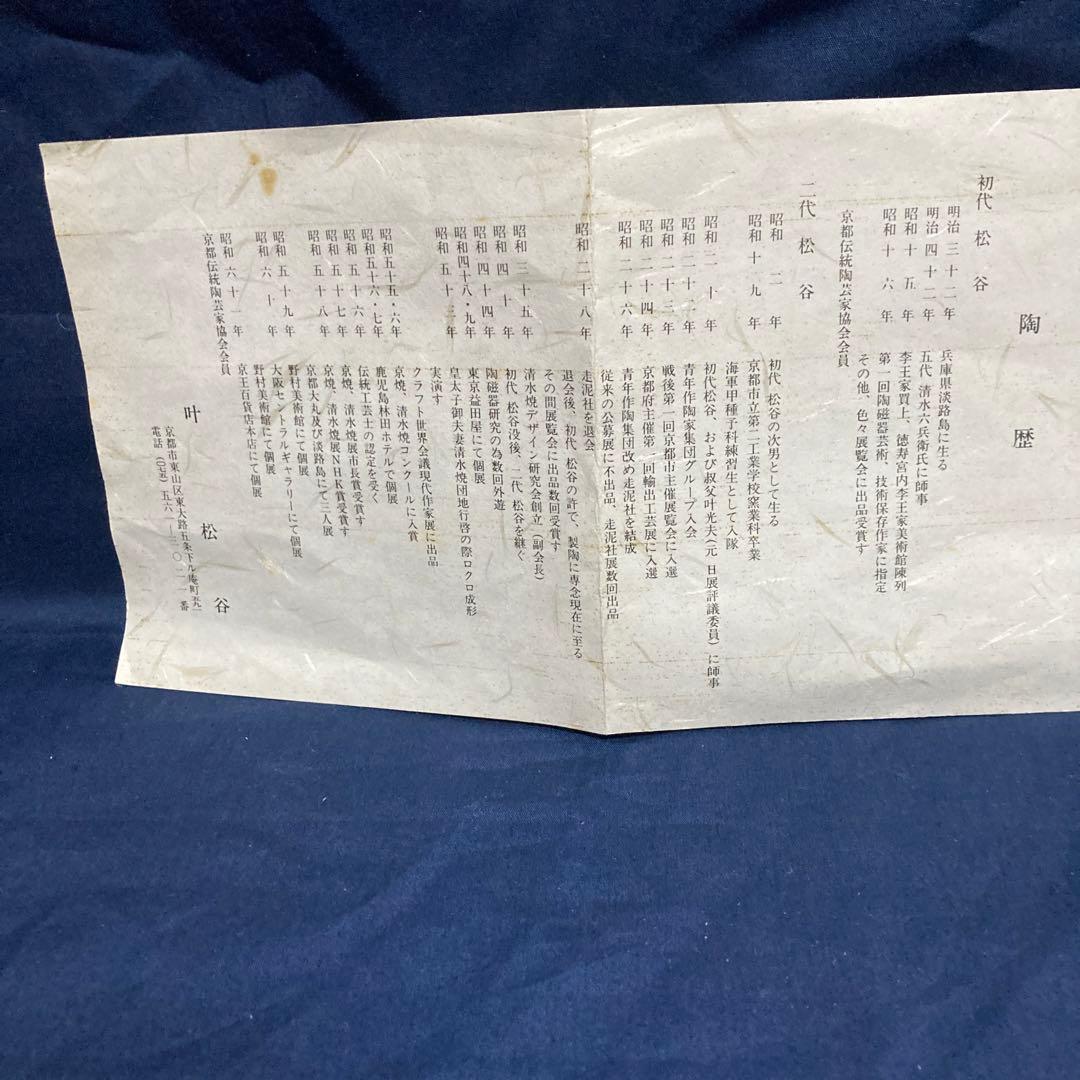 陶歴
初代 松谷
明治三十二年 兵庫県淡路島に生る
明治四十二年 五代 清水六兵衛氏に師事
昭和十五年 李王家買上、徳寿宮内李王家美術館陳列
昭和十六年 第一回陶磁器芸術、技術保存作家に指定
その他、色々展覧会に出品受賞す
京都伝統陶芸家協会会員
二代 松谷
昭和二年 初代 松谷の次男として生る
京都市立第二工業学校窯業科卒業
昭和十九年 海軍甲種予科練習生として入隊
昭和二十年 初代松谷 および叔父叶光夫(元 日展評議委員)に師事
昭和二十二年 青年作陶家集団グループ入会
昭和二十三年 戦後第一回京都市主催展覧会に入選
昭和二十四年 京都府主催第一回輸出工芸展に入選
昭和二十六年 青年作陶集団改め走泥社を結成
従来の公募展に不出品、走泥社展数回出品
昭和二十八年 走泥社を退会
退会後、初代 松谷の許で、製陶に専念現在に至る
その間展覧会に出品数回受賞す
昭和三十五年 清水焼デザイン研究会創立(副会長)
昭和四十年 初代 松谷没後、二代 松谷を継ぐ
昭和四十四年 陶磁器研究の為数回外遊
昭和四十八・九年 東京益田屋にて個展
昭和五十三年 皇太子御夫妻清水焼団地行啓の際ロクロ成形
実演す
クラフト世界会議現代作家展に出品
昭和五十五・六年 京焼、清水焼コンクールに入賞
昭和五十六・七年 鹿児島林田ホテルで個展
昭和五十六年 伝統工芸士の認定を受く
昭和五十七年 京焼、清水焼展市長賞受賞す
昭和五十八年 京焼、清水焼展NHK賞受賞す
京都大丸及び淡路島にて三人展
昭和五十九年 野村美術館にて個展
昭和六十年 大阪セントラルギャラリーにて個展
野村美術館にて個展
昭和六十一年 京王百貨店本店にて個展
京都伝統陶芸家協会会員
叶 松谷
京都市東山区東大路五条下ル
電話(〇七五)五六一-三〇二一番